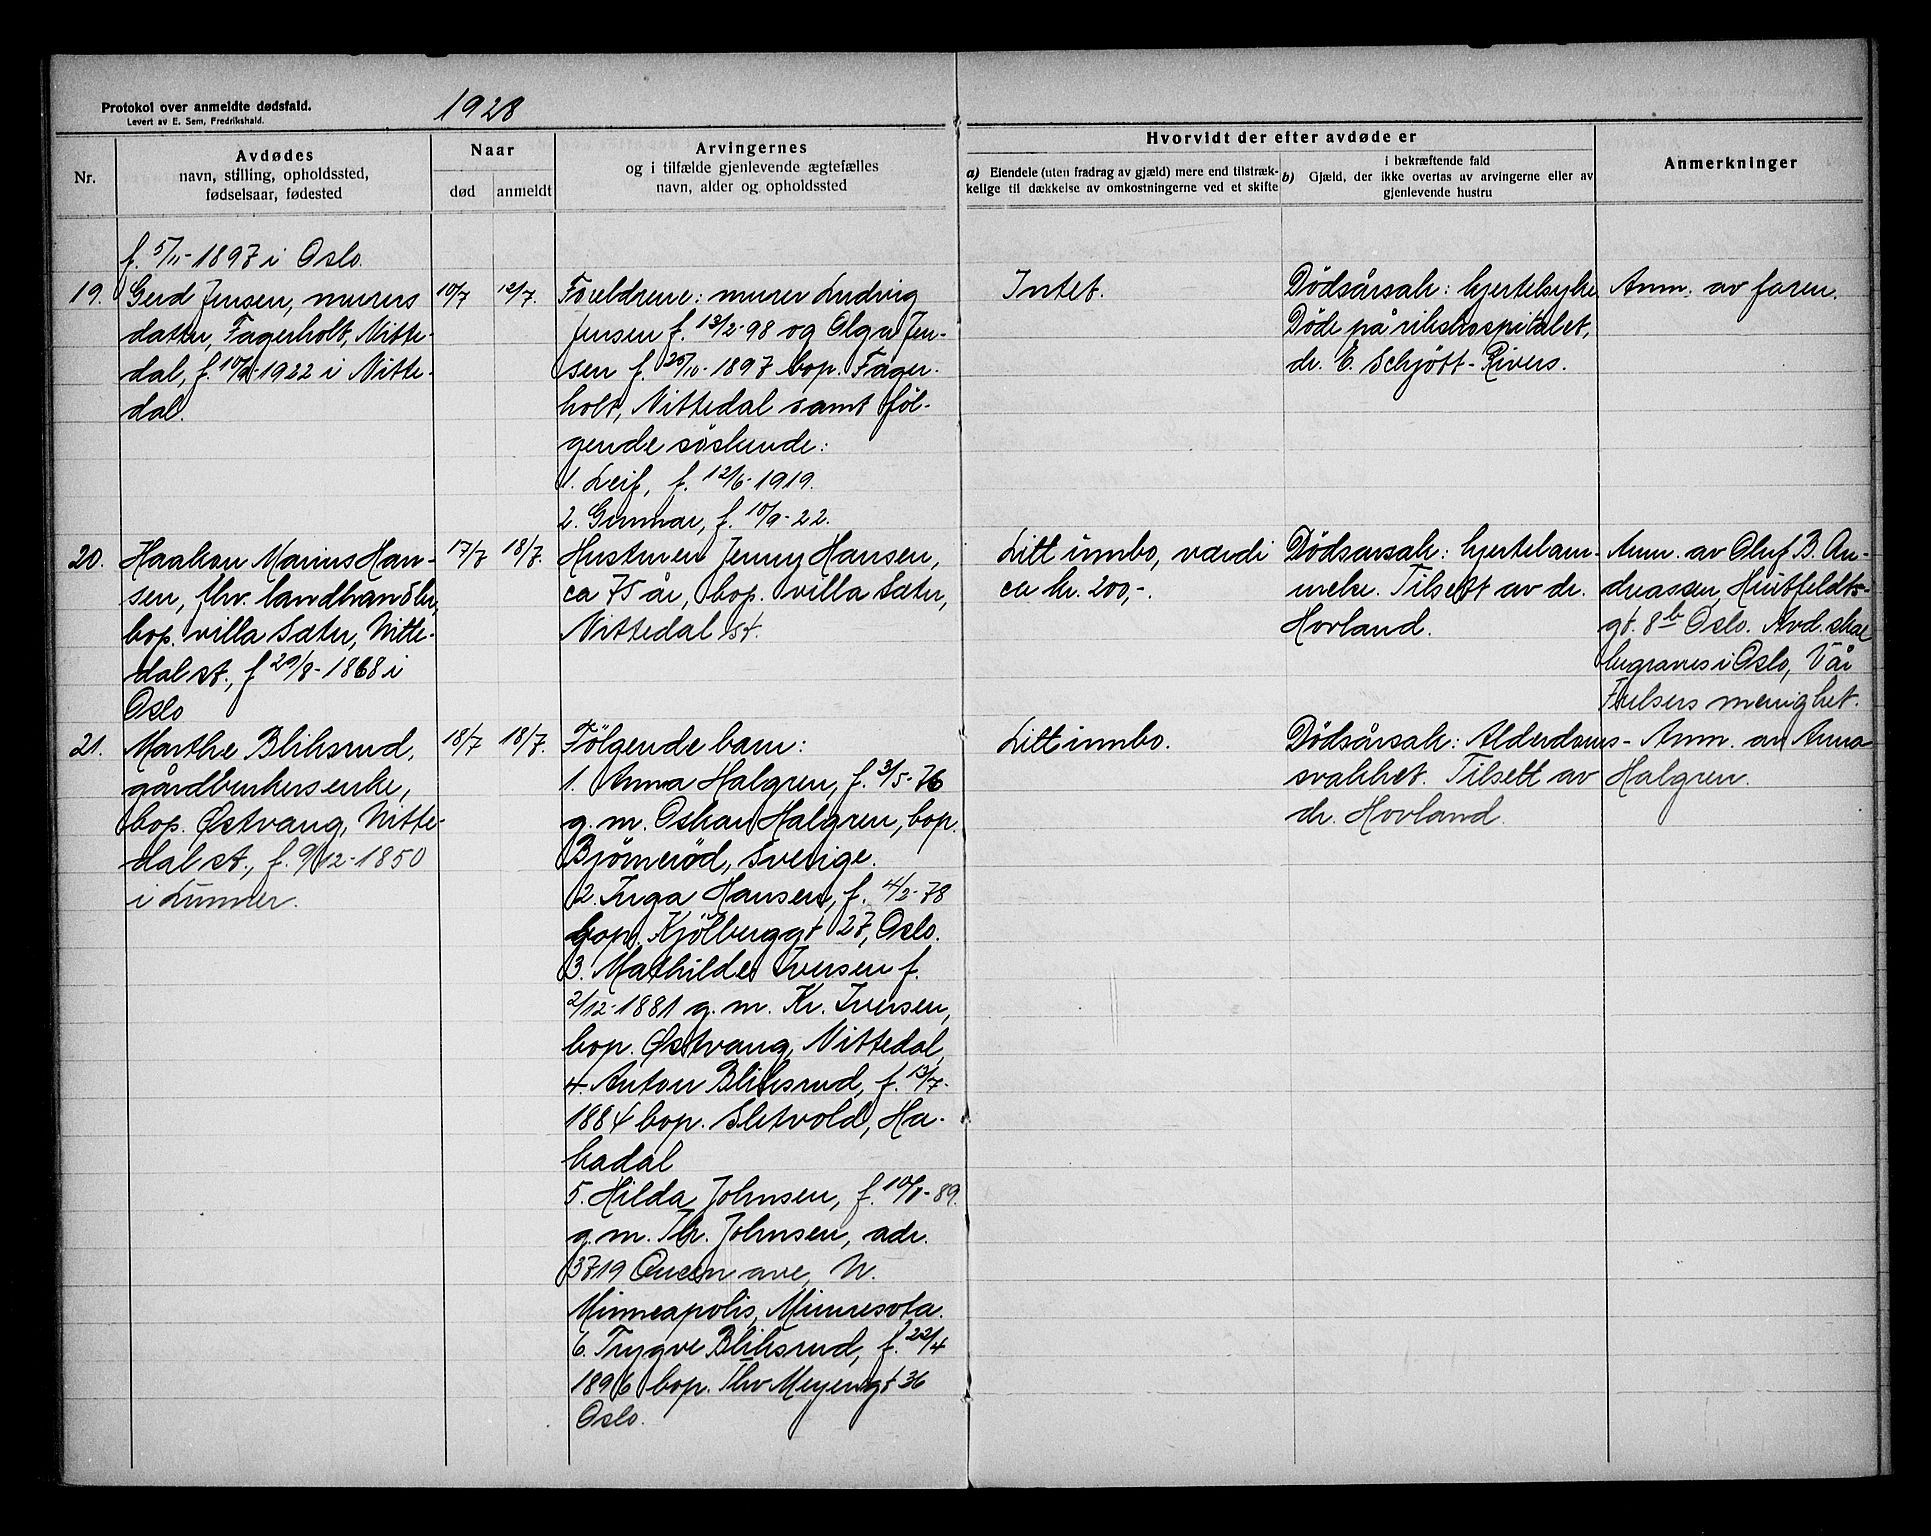 Protokol over anmeldte dødsfald.
Levert av E. Sem, Fredrikshald.
1928
Nr.
Avdødes
navn, stilling, opholdssted,
fødselsaar, fødested
Naar
død
anmeldt
Arvingernes
og i tilfælde gjenlevende ægtefælles
navn, alder og opholdssted
Hvorvidt der efter avdøde er
a) Eiendele (uten fradrag av gjæld) mere end tilstræk-
kelige til dækkelse av omkostningerne ved et skifte
b) i bekræftende fald
Gjæld, der ikke overtas av arvingerne eller av
gjenlevende hustru
Anmerkninger
f. 5/11-1897 i Oslo.
19.
Gerd Jensen, murers
datter, Fagerholt, Nitte-
dal, f. 10/9-1922 i Nitte-
dal.
10/7
12/7.
Foreldrene: murer Ludvig
Jensen f. 13/2-98 og Olga Jen-
sen f. 25/10-1897 bop. Fager-
holt, Nittedal samt føl-
gende søskende:
1. Leif, f. 12/6-1919.
2. Gunnar, f. 10/9-22.
Intet.
Dödsårsak: hjertesyke
Döde på rikshospitalet,
dr. E. Schjött-Rivers.
Anm. av faren.
20.
Haakon Marius Han-
sen, fhv. landhandler,
bop. villa Sæter, Nitte-
dal st., f 29/8-1868 i
Oslo
17/7
18/7.
Hustruen Jenny Hansen,
ca 75 år, bop. villa Sæter,
Nittedal st.
Litt innbo, værdi
ca kr. 200,-.
Dödsårsak: hjertelam-
melse. Tilsett av dr.
Hovland.
Anm. av Oluf B. An-
dreassen, Huitfeldts-
gt. 8b Oslo. Avd. skal
begraves i Oslo, Vår
Frelsers menighet.
21.
Marthe Bliksrud,
gårdbrukersenke,
bop. Østvang, Nitte-
dal st., f. 9/12-1850
i Lunner.
18/7
18/7.
Følgende barn:
1. Anna Halgren, f. 3/5-76
g. m. Oskar Halgren, bop.
Björneröd, Sverige.
2. Inga Hansen, f. 4/2-78
bop. Kjölberggt 27, Oslo.
3. Mathilde Iversen f.
2/12-1881 g. m. Kr. Iversen,
bop. Østvang, Nittedal,
4. Anton Bliksrud, f. 13/7-
1884 bop. Sletvold, Ha-
kadal
5. Hilda Johnsen, f. 10/1-89.
g. m. Th. Johnsen, adr.
3719 Queen ave, N.
Minneapolis, Minnesota.
6. Trygve Bliksrud, f. 22/4
1896 bop. Thv Meyersgt 36
Oslo.
Litt innbo.
Dödsårsak: Alderdoms-
svakhet. Tilsett av
dr. Hovland.
Anm. av Anna
Halgren.